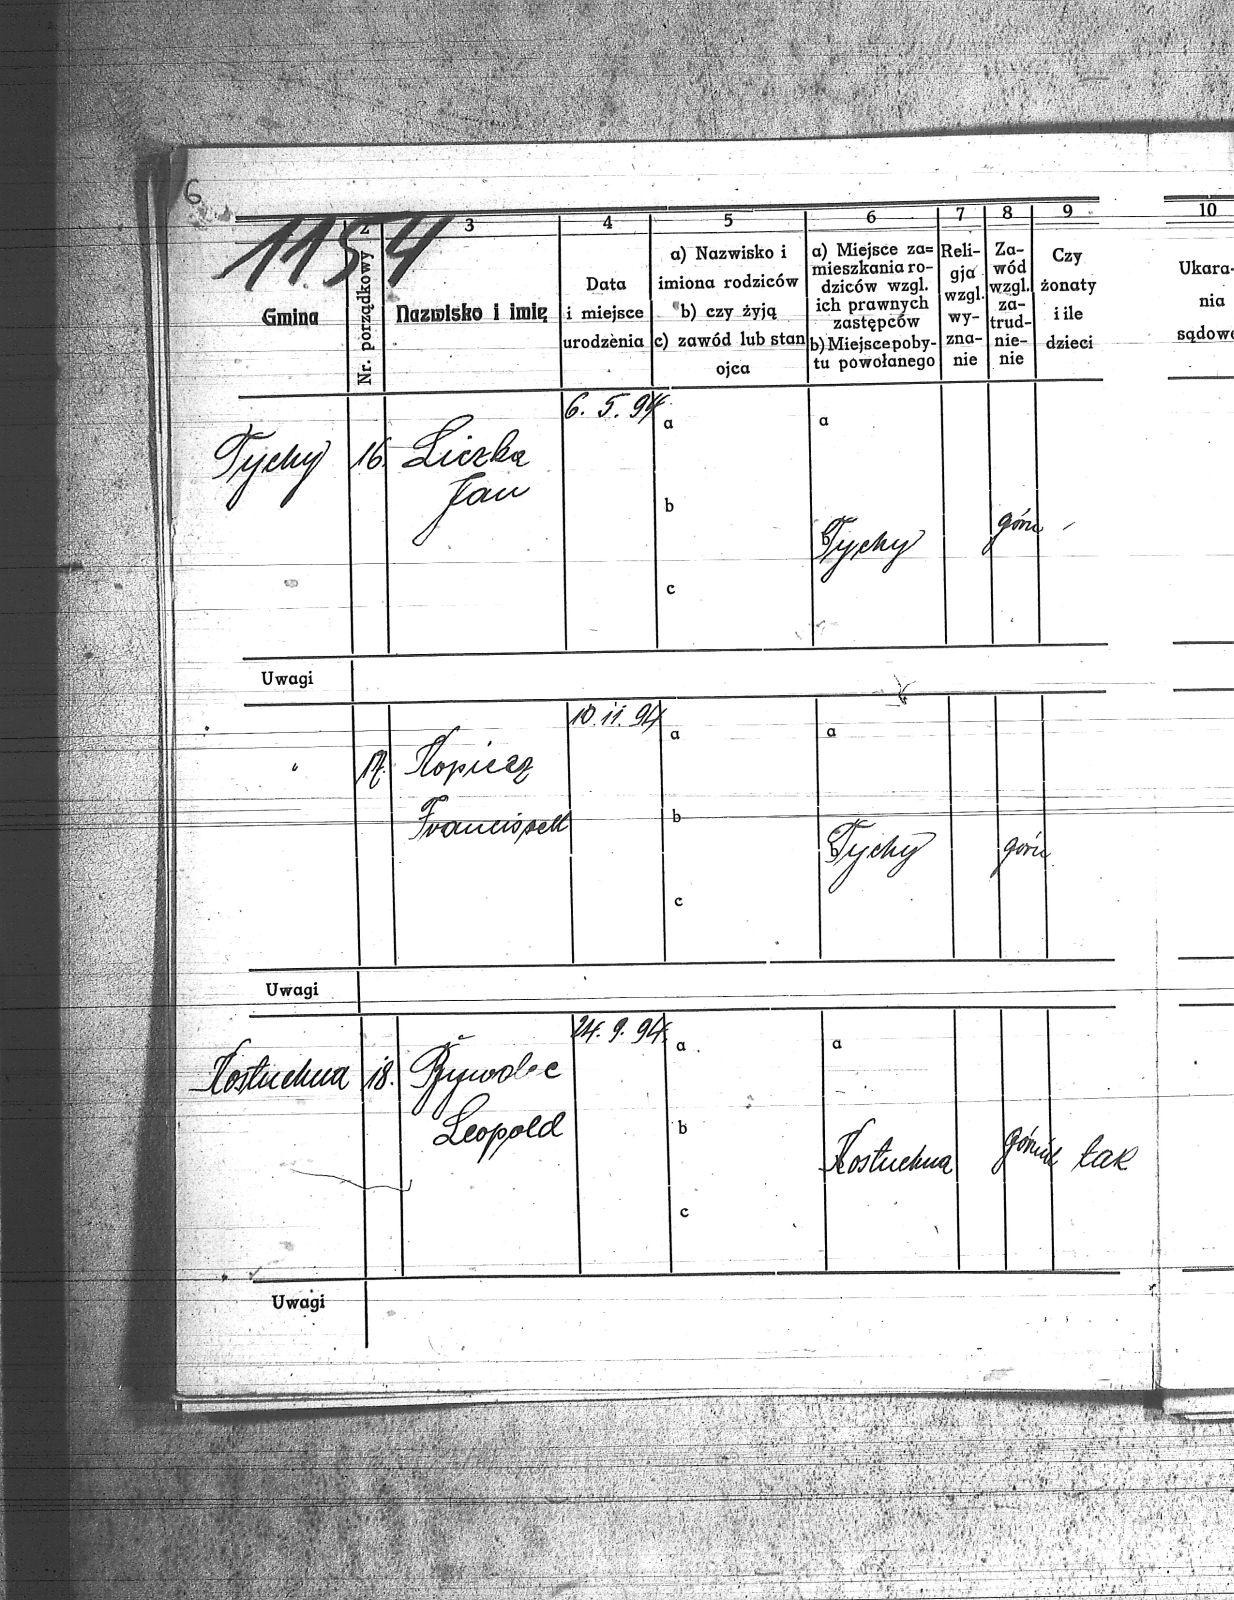 6
1154
2 3 4 5 6 7 8 9 10
Gmina
Nr. porządkowy
Nazwisko i imię
Data
i miejsce
urodzenia
a) Nazwisko i
imiona rodziców
b) czy żyją
c) zawód lub stan
ojca
a) Miejsce za=
mieszkania ro-
dziców wzgl.
ich prawnych
zastępców
b) Miejsce poby-
tu powołanego
Reli-
gja
wzgl.
wy-
zna-
nie
Za-
wód
wzgl.
za-
trud-
nie-
nie
Czy
żonaty
i ile
dzieci
Ukara-
nia
sądowe
6. 5. 94
a a
Tychy 16. Liczka
Jan
b
b Tychy górn -
c
Uwagi
10. 11. 94
a a
" 17. Kopiecz
Franciszek
b
b Tychy górn
c
Uwagi
24. 9. 94.
a a
Kostuchna 18. Leopold
b
Kostuchna górnik tak
c
Uwagi